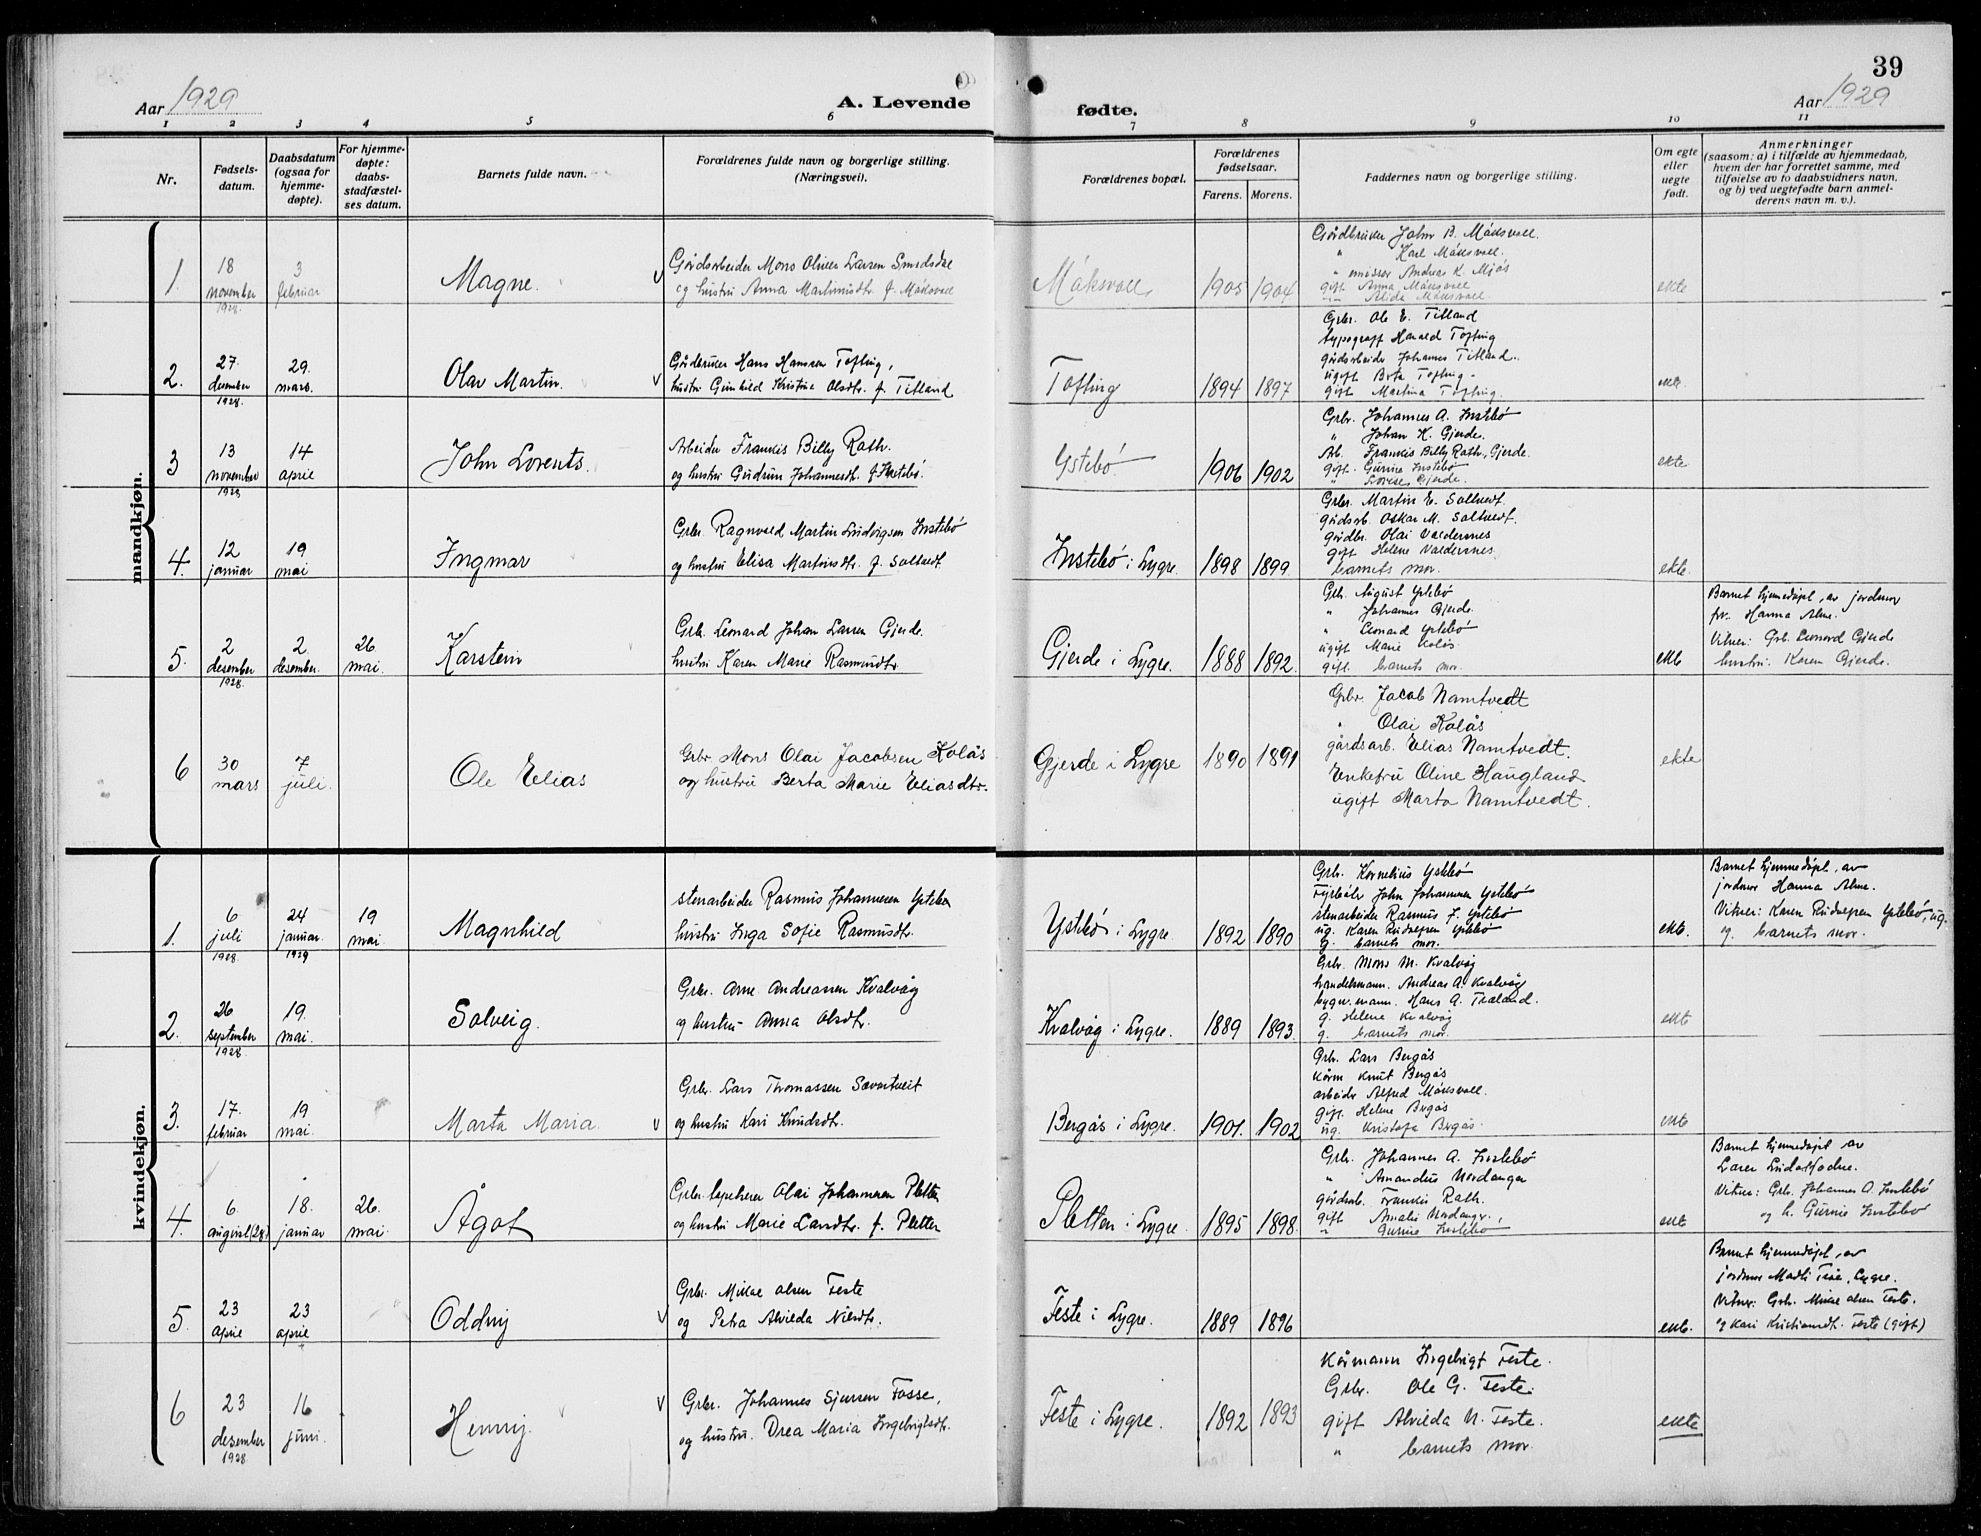 39
Aar 1929
A. Levende
fødte.
Aar 1929
1 2 3 4 5 6 7 8 9 10 11
Nr.
Fødsels-
datum.
Daabsdatum
(ogsaa for
hjemme-
døpte).
For hjemme-
døpte:
daabs-
stadfæstel-
ses datum.
Barnets fulde navn.
Forældrenes fulde navn og borgerlige stilling.
(Næringsvei).
Forældrenes bopæl.
Forældrenes
fødselsaar.
Farens. Morens.
Faddernes navn og borgerlige stilling.
Om egte
eller
uegte
født.
Anmerkninger
(saasom: a) i tilfælde av hjemmedaab,
hvem der har forrettet samme, med
tilføielse av to daabsvidners navn,
og b) ved uegtefødte barn anmel-
derens navn m. v.).
mandkjøn.
1.
18
november
1928.
3
februar
Magne.
Gårdsarbeider Mons Oliver Larsen Smedsdal
og hustru Anna Martinusdtr. f. Måksvoll
Måksvoll,
1905 1904
Gårdbruker John B. Måksvoll.
" Karl Måksvoll.
" emissær Andreas K. Mjøs
gift Anna Måksvoll
" Alida Måksvoll
ekte
2.
27.
desember
1928.
29.
mars.
Olav Martin.
Gårdbruker Hans Hansen Tofting,
hustru Gunhild Kristine Olsdtr. f. Titland
Tofting
1894 1897
Grbr. Ole E. Titland
typograff Harald Tofting
gårdsarbeider Johannes Titland.
ugift Berta Tofting.
gift Martina Tofting.
ekte.
3
13
november
1928
14
april
John Lorents.
Arbeider Frankis Billy Rath.
og hustru Gudrun Johannesdtr. f. Instebø.
Ystebö
1906 1902
Grbr. Johannes A. Instebø
" Johan K. Gjerde.
Arb. Frankis Billy Rath, Gjerde.
gift. Gurine Instebø
" Lovise Gjerde.
ekte
4.
12
januar
19
mai
Ingmar
Grbr. Ragnvald Martin Ludvigsen Instebø
og hustru Elisa Martinsdtr. f. Saltvedt
Instebø i Lygre.
1898 1899
Grbr. Martin E. Saltvedt.
gårdsarb. Oskar M. Saltvedt.
gårdbr. Olai Valdersnes
gift Helene Valdersnes
barnets mor.
ekte.
5.
2
desember
1928.
2.
desember.
26.
mai.
Karstein
Grbr. Leonard Johan Larsen Gjerde.
hustru Karen Marie Rasmusdtr.
Gjerde i Lygre.
1888 1892.
Grb. August Ystebø
" Johannes Gjerde.
" Leonard Ystebø
ugift Marie Kolås.
gift. barnets mor.
ekte
Barnet hjemmedøpt, av jordmor
fru. Hanna Alme.
Vitner: Grb. Leonard Gjerde
hustru: Karen Gjerde.
6
30
mars
7
juli.
Ole Elias
Grbr. Mons Olai Jacobsen Kolås
og hustru Berta Marie Eliasdtr.
Gjerde i Lygre
1890 1891
Grbr. Jacob Namtvedt
" Olai Kolås
gårdsarb. Elias Namtvedt.
Enkefru Oline Haugland
ugift Marta Namtvedt.
ekte
kvindekjøn.
1.
6
juli
1928.
24
januar.
1929
19
mai
Magnhild
stenarbeider Rasmus Johannesen Ystebø
hustru Inga Sofie Rasmusdtr.
Ystebø i Lygre.
1892 1890
Grb. Kornelius Ystebø
Fyrbøter John Johannesen Ystebø
stenarbeider Rasmus J. Ystebø
ug. Karen Rudolfsen Ystebø
g. barnets mor.
ekte.
Barnet hjemmedøpt, av
jordmor Hanna Alme.
Vitner: Karen Rudolfsen Ystebø, ug.
og. barnets mor.
2.
26
september
1928
19.
mai.
Solveig.
Grbr. Arne Andreassen Kvalvåg
og hustru Anna Olsdtr.
Kvalvåg i Lygre.
1889 1893.
Grb. Mons M. Kvalvåg
handelsmann. Andreas A. Kvalvåg
bygn. mann. Hans A. Træland.
g. Helene Kvalvåg
g. barnets mor.
ekte
3.
17.
februar
19
mai.
Marta Maria.
Grbr. Lars Thomassen Sævartveit
og hustru Kari Knudsdtr.
Bergås i Lygre.
1901. 1902
Grb. Lars Bergås
Kårm Knut Bergås
arbeider Alfred Måksvoll.
gift. Helene Bergås
ug. Kristofa Bergås.
ekte
4.
6.
august (28)
18.
januar
26.
mai.
Ågot
Grbr. Olai Johannesen Pletten
og hustru Marie Larsdtr. f. Pletten
Pletten i Lygre.
1895 1898.
Grb. Johannes A. Instebø
" Amandus Nordanger
gårdsarb. Frankis Rath.
gift Amalie Nordanger.
" Gurine Instebø
ekte
Barnet hjemmedøpt av
Vitner: Grb. Johannes A. Instebø
og h. Gurine Instebø
5.
23
april
23
april
Oddny
Grbr. Mikal Olsen Feste
og Petra Alvilda Nilsdtr.
Feste i Lygre.
1889 1896
ekte.
Barnet hjemmedøpt, av
jordmor Madli Lygre.
Vitner: Grb. Mikal Olsen Feste.
og Kari Kristiansdtr. Feste (gift)
6
23
desember
1928
16
juni.
Henny.
Grbr. Johannes Sjursen Fosse,
og hustru. Drea Maria Ingebrigtsdtr.
Feste i Lygre.
1892 1893
Kårmann Ingebrigt Feste.
Grbr. Ole G. Feste.
gift Alvilda N. Feste.
" barnets mor.
ekte